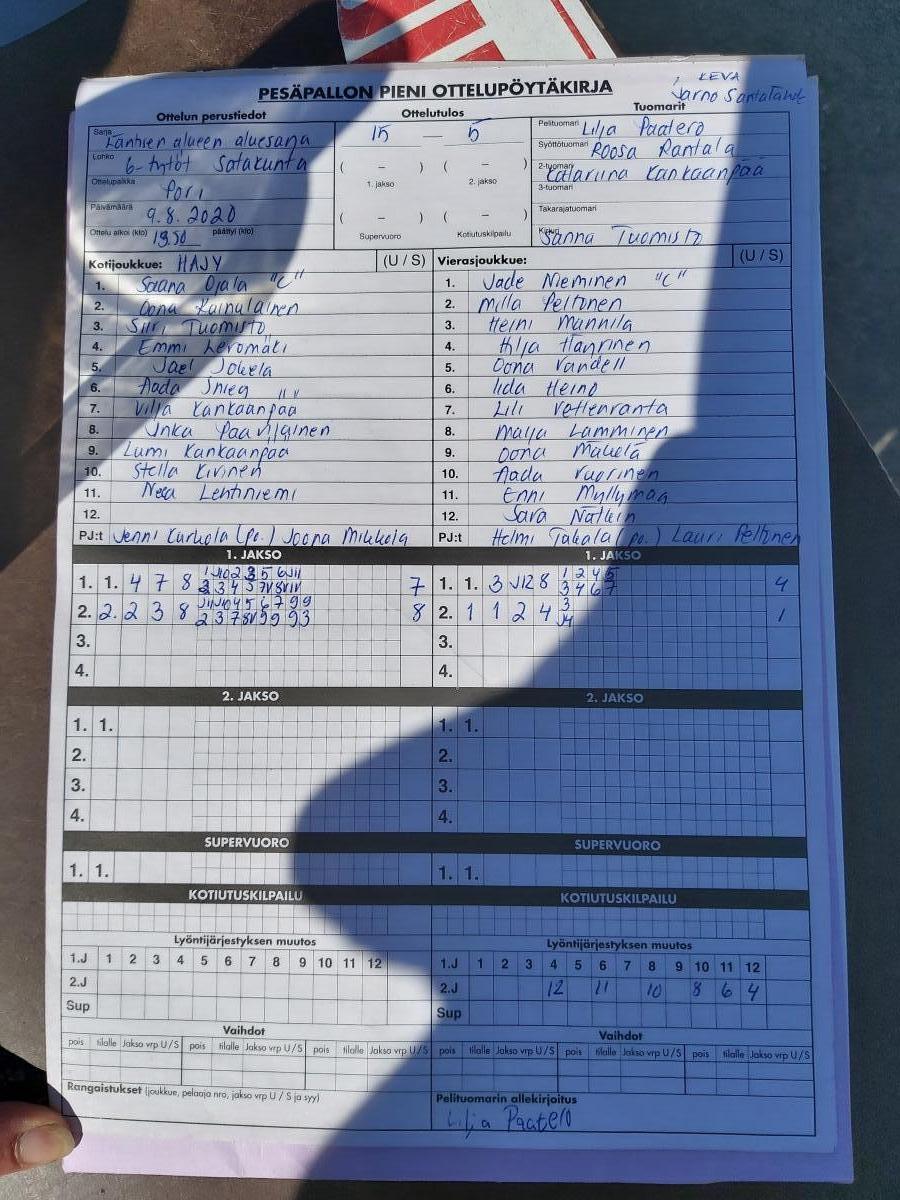 PESÄPALLON PIENI OTTELUPÖYTÄKIRJA
KEVA
Jarno Santalahti
Ottelun perustiedot Ottelutulos Tuomarit
Sarja Läntisen alueen aluesarja
Lohko 6-tytöt Satakunta
Ottelupaikka Pori
Päivämäärä 9.8.2020
Ottelu alkoi (klo) 19.50 päättyi (klo)
15 — 5
( – ) ( – )
1. jakso 2. jakso
( – ) ( – )
Supervuoro Kotiutuskilpailu
Pelituomari Lilja Paatero
Syöttötuomari Roosa Rantala
2-tuomari Katariina Kankaanpää
3-tuomari
Takarajatuomari
Kirjuri Sanna Tuomisto
Kotijoukkue: HAJY (U / S)
1. Saana Ojala "C"
2. Oona Kainulainen
3. Siiri Tuomisto
4. Emmi Levomäki
5. Jael Jokela
6. Aada
7. Vilja Kankaanpää
8. Inka Paavilainen
9. Lumi Kankaanpää
10. Stella Kivinen
11. Neea Lehtiniemi
12.
PJ:t Jenni Karhola (po.) Joona Mikkola
Vierasjoukkue: (U / S)
1. Jade Nieminen "C"
2. Milla Peltonen
3. Heini Mannila
4. Hilja Häyrinen
5. Oona Vandell
6. Iida Heino
7. Lili Vettenranta
8. Maija Lamminen
9. Oona Mäkelä
10. Aada Vuorinen
11. Enni Myllymaa
12. Sara
PJ:t Helmi Takala (po.) Lauri Peltonen
1. JAKSO 1. JAKSO
1. 1. 4 7 8 7
2. 2. 2 3 8 8
3.
4.
1. 1. 3 8 4
2. 1 1 2 4 1
3.
4.
2. JAKSO 2. JAKSO
1. 1. 1. 1.
2. 2.
3. 3.
4. 4.
SUPERVUORO SUPERVUORO
1. 1. 1. 1.
KOTIUTUSKILPAILU KOTIUTUSKILPAILU
Lyöntijärjestyksen muutos Lyöntijärjestyksen muutos
1.J 1 2 3 4 5 6 7 8 9 10 11 12 1.J 1 2 3 4 5 6 7 8 9 10 11 12
2.J 2.J 12 11 10 8 6 4
Sup Sup
Vaihdot Vaihdot
pois tilalle Jakso vrp U/S pois tilalle Jakso vrp U/S pois tilalle Jakso vrp U/S pois tilalle Jakso vrp U/S pois tilalle Jakso vrp U/S pois tilalle Jakso vrp U/S
Rangaistukset (joukkue, pelaaja nro, jakso vrp U / S ja syy)
Pelituomarin allekirjoitus
Lilja Paatero